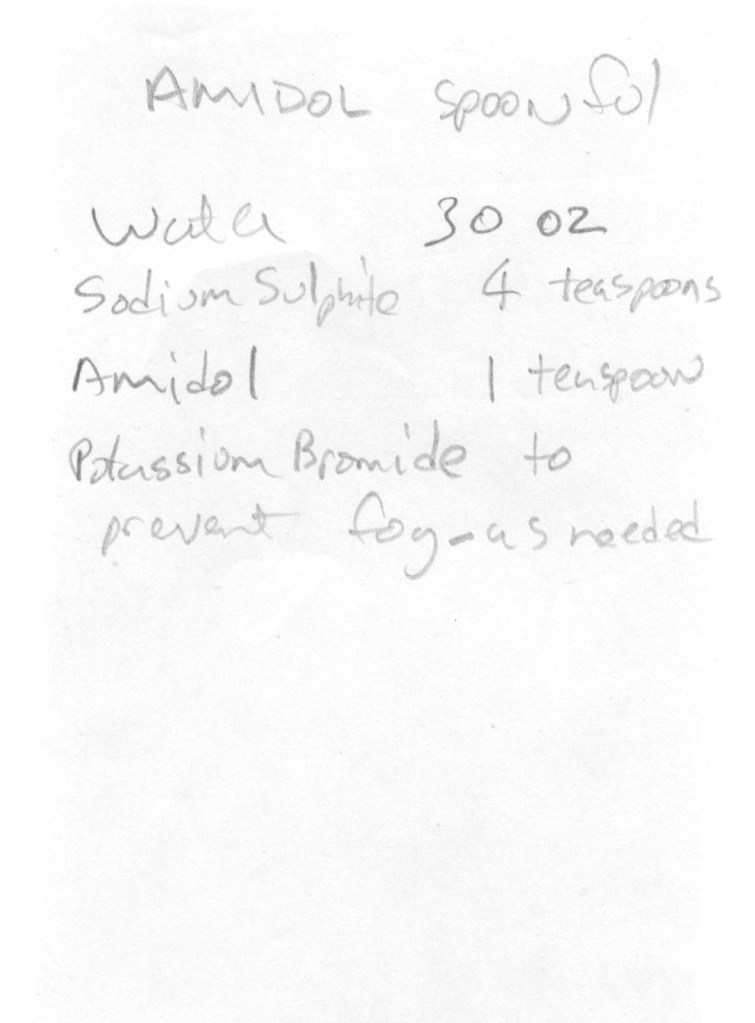 AMIDOL spoonful
Water 30 oz
Sodium Sulphite 4 teaspoons
Amidol 1 teaspoon
Potassium Bromide to
prevent fog-as needed